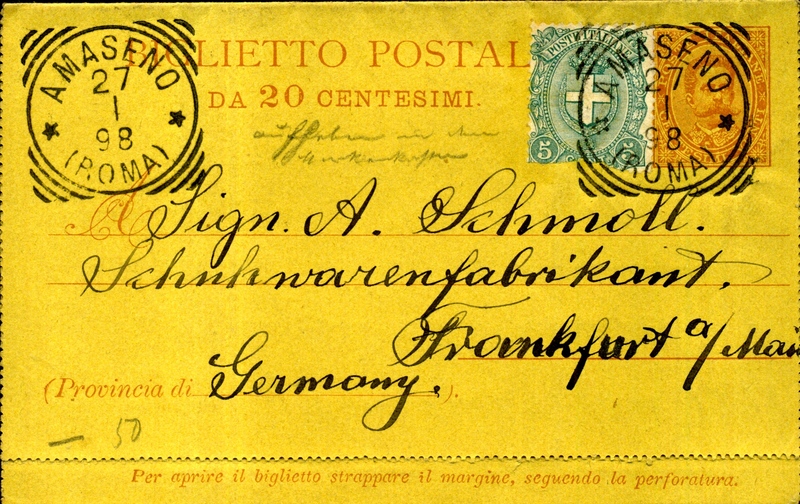 BIGLIETTO POSTAL
DA 20 CENTESIMI.
AMASENO
27
1
98
(ROMA)
POSTE ITALIANE
5 5
AMASENO
27
1
98
(ROMA)
aufheben in den
A Sign. A. Schmoll.
Schuhwarenfabrikant.
Frankfurt a/Main
(Provincia di Germany. ).
— 50
Per aprire il biglietto strappare il margine, seguendo la perforatura.